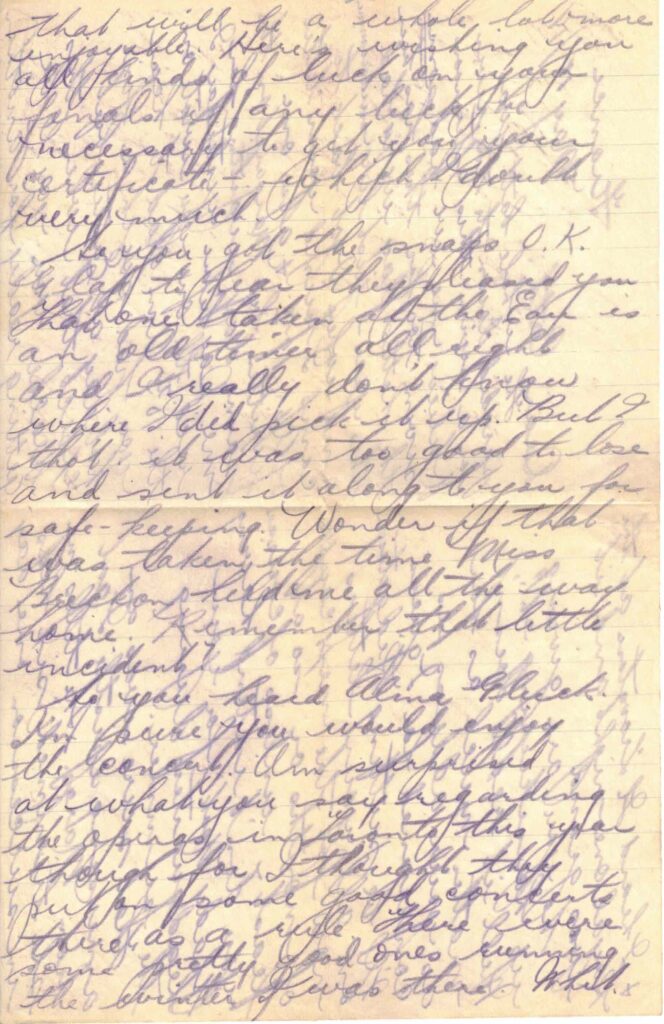 that will be a whole lot more
enjoyable. Here's wishing you
all kinds of luck on your
finals if any luck be
necessary to get you your
certificate - which I doubt
very much.
So you got the snaps O.K.
Glad to hear they pleased you
That one taken at the Eau is
an old timer all right
and I really don't know
where I did pick it up. But I
thot it was too good to lose
and sent it along to you for
safe-keeping. Wonder if that
was taken the time Miss
held me all the way
home. Remember that little
incident?
So you heard Alma Gluck.
I'm sure you would enjoy
the concert. Am surprised
at what you say regarding
the operas in Toronto this year
though for I thought they
put on some good concerts
there as a rule. There were
some pretty good ones running
the winter I was there. What